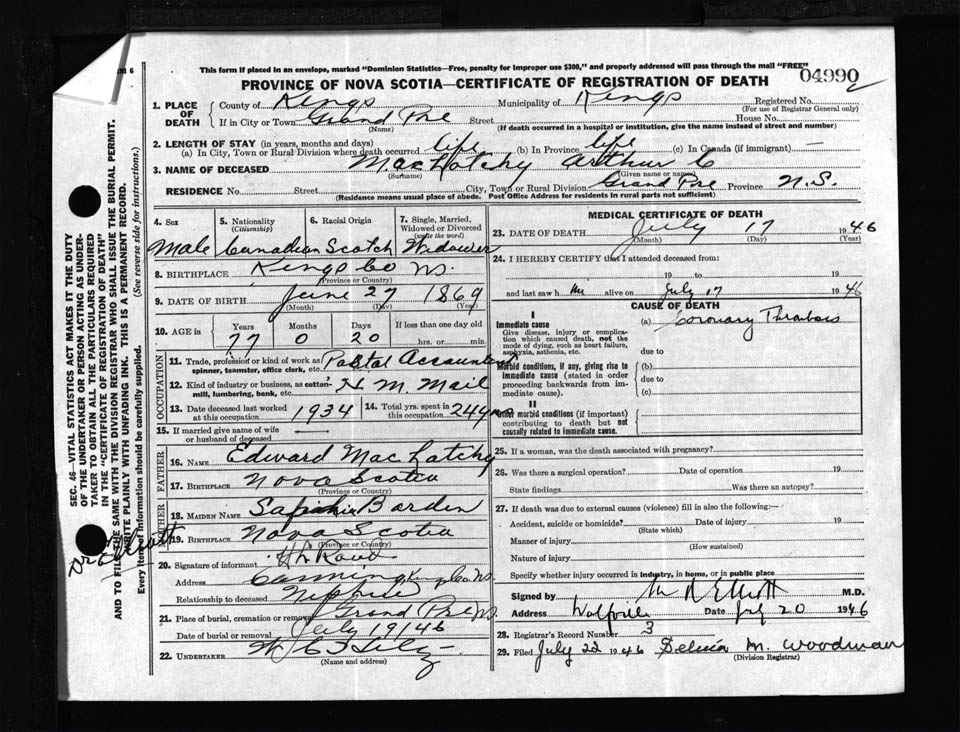 This form if placed in an envelope, marked "Dominion Statistics—Free, penalty for improper use $300," and properly addressed will pass through the mail "FREE"
PROVINCE OF NOVA SCOTIA—CERTIFICATE OF REGISTRATION OF DEATH
04990
1. PLACE OF DEATH County of Kings Municipality of Kings Registered No. (For use of Registrar General only)
If in City or Town Grand Pre Street House No.
(Name) (If death occurred in a hospital or institution, give the name instead of street and number)
2. LENGTH OF STAY (in years, months and days)
(a) In City, Town or Rural Division where death occurred life (b) In Province life (c) In Canada (if immigrant) —
3. NAME OF DECEASED MacLatchy Arthur C
(Surname) (Given name or names)
RESIDENCE No. Street City, Town or Rural Division Grand Pre Province N.S.
(Residence means usual place of abode. Post Office Address for residents in rural parts not sufficient)
4. Sex 5. Nationality (Citizenship) 6. Racial Origin 7. Single, Married, Widowed or Divorced (write the word)
Male Canadian Scotch Widower
8. BIRTHPLACE Kings Co NS.
(Province or Country)
9. DATE OF BIRTH June 27 1869
(Month) (Day) (Year)
10. AGE in Years Months Days If less than one day old
77 0 20 hrs. or min.
OCCUPATION
11. Trade, profession or kind of work as spinner, teamster, office clerk, etc. Postal Accountant
12. Kind of industry or business, as cotton-mill, lumbering, bank, etc. H M Mail
13. Date deceased last worked at this occupation 1934 14. Total yrs. spent in this occupation 24 yrs
15. If married give name of wife or husband of deceased —
FATHER
16. NAME Edward MacLatchy
17. BIRTHPLACE Nova Scotia
(Province or Country)
MOTHER
18. MAIDEN NAME Borden
19. BIRTHPLACE Nova Scotia
(Province or Country)
20. Signature of informant
Address Canning Kings Co NS.
Relationship to deceased Nephew
21. Place of burial, cremation or removal Grand Pre NS.
Date of burial or removal July 19/46
22. UNDERTAKER
(Name and address)
MEDICAL CERTIFICATE OF DEATH
23. DATE OF DEATH July 17 1946
(Month) (Day) (Year)
24. I HEREBY CERTIFY that I attended deceased from:
19 to 19
and last saw h im alive on July 17 1946
CAUSE OF DEATH
I
Immediate cause
Give disease, injury or complication which caused death, not the mode of dying, such as heart failure, asphyxia, asthenia, etc.
(a) Coronary Thrombosis
due to
Morbid conditions, if any, giving rise to immediate cause (stated in order proceeding backwards from immediate cause).
(b)
due to
(c)
II
Other morbid conditions (if important) contributing to death but not causally related to immediate cause.
25. If a woman, was the death associated with pregnancy?
26. Was there a surgical operation? Date of operation 19
State findings Was there an autopsy?
27. If death was due to external causes (violence) fill in also the following:—
Accident, suicide or homicide? Date of injury 19
(State which)
Manner of injury
(How sustained)
Nature of injury
Specify whether injury occurred in industry, in home, or in public place
Signed by M R Elliott M.D.
Address Wolfville Date July 20 1946
28. Registrar's Record Number 3
29. Filed July 22 1946 M. Woodman
(Division Registrar)
SEC. 46—VITAL STATISTICS ACT MAKES IT THE DUTY
OF THE UNDERTAKER OR PERSON ACTING AS UNDERTAKER
TO OBTAIN ALL THE PARTICULARS REQUIRED
IN THE "CERTIFICATE OF REGISTRATION OF DEATH"
AND TO FILE THE SAME WITH THE DIVISION REGISTRAR WHO SHALL ISSUE THE BURIAL PERMIT.
WRITE PLAINLY WITH UNFADING INK. THIS IS A PERMANENT RECORD.
Every item of information should be carefully supplied. (See reverse side for instructions.)
Dr Elliott